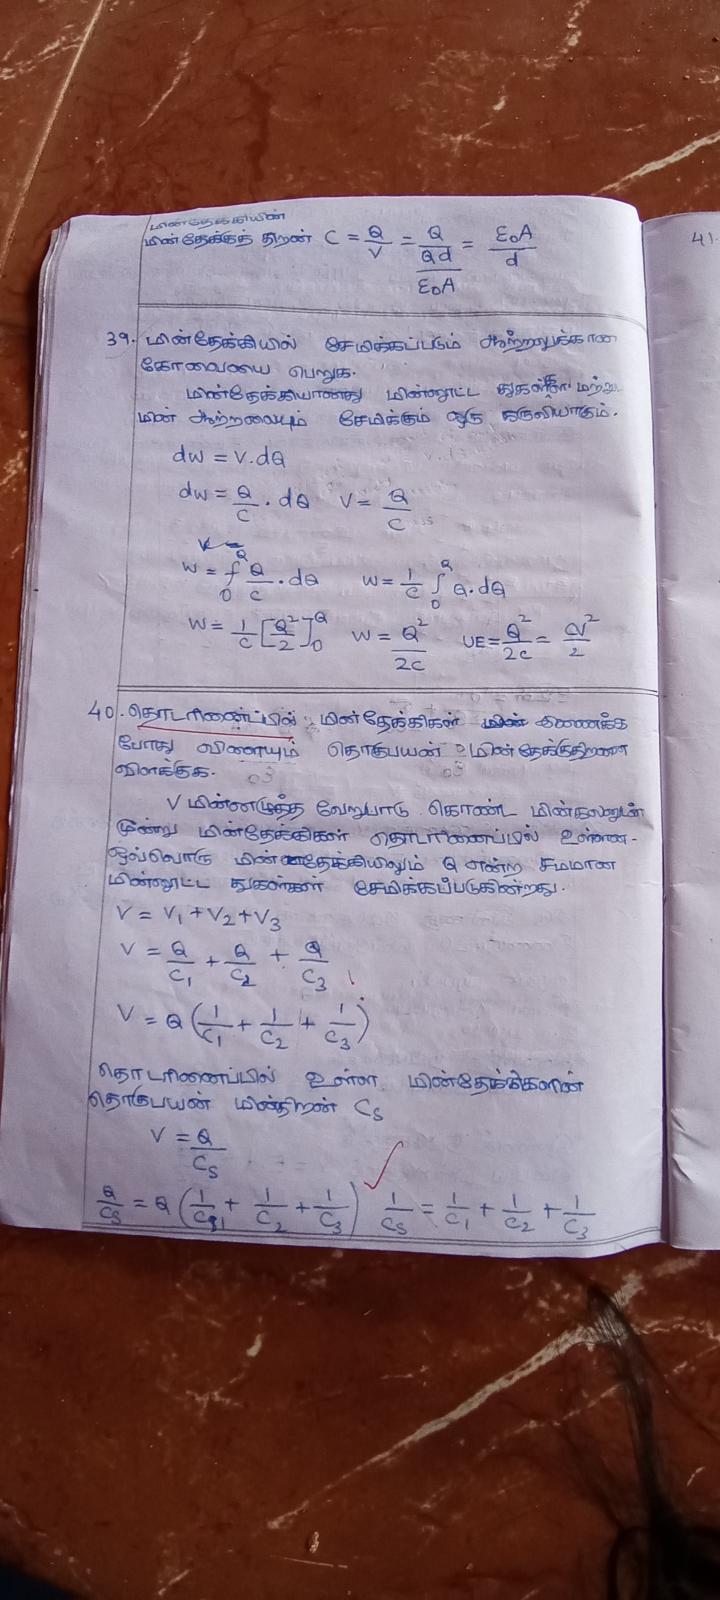 மின்தேக்கியின்
மின்தேக்குத் திறன் C = Q/V = Q/(Qd/ε₀A) = ε₀A/d
41.
39. மின்தேக்கியில் சேமிக்கப்படும் ஆற்றலுக்கான
கோவையை பெறுக.
மின்தேக்கியானது மின்னூட்ட துகள்கள் மற்று
மின் ஆற்றலையும் சேமிக்கும் ஒரு கருவியாகும்.
dw = V.dQ
dw = Q/C . dQ V = Q/C
W = ∫₀^Q Q/C . dQ W = 1/C ∫₀^Q Q.dQ
W = 1/C [Q²/2]₀^Q W = Q²/2C UE = Q²/2C = CV²/2
40. தொடரிணைப்பில் மின்தேக்கிகள் இணைக்க
போது விளையும் தொகுபயன் மின்தேக்குதிறனை
விளக்குக.
V மின்னழுத்த வேறுபாடு கொண்ட மின்கலனுடன்
மூன்று மின்தேக்கிகள் தொடரிணைப்பில் உள்ளன.
ஒவ்வொரு மின்தேக்கியிலும் Q என்ற சமமான
மின்னூட்ட துகள்கள் சேமிக்கப்படுகின்றது.
V = V₁ + V₂ + V₃
V = Q/C₁ + Q/C₂ + Q/C₃
V = Q (1/C₁ + 1/C₂ + 1/C₃)
தொடரிணைப்பில் உள்ள மின்தேக்கிகளின்
தொகுபயன் மின்திறன் Cs
V = Q/Cs
Q/Cs = Q (1/C₁ + 1/C₂ + 1/C₃) 1/Cs = 1/C₁ + 1/C₂ + 1/C₃